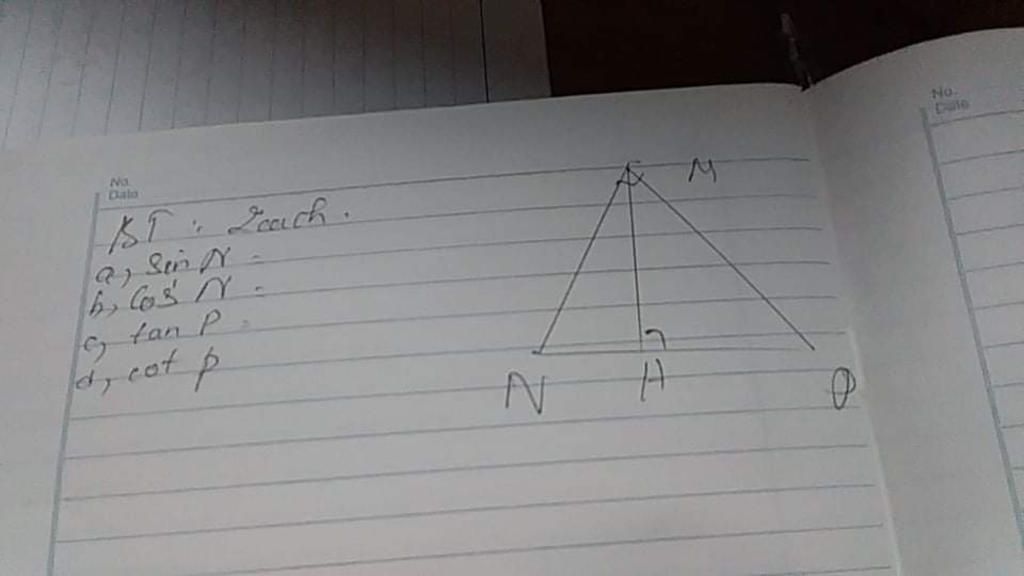 No.
Date
BT: 2 cách.
a, sin N =
b, cos N =
c, tan P =
d, cot P
M
N H P
No.
Date